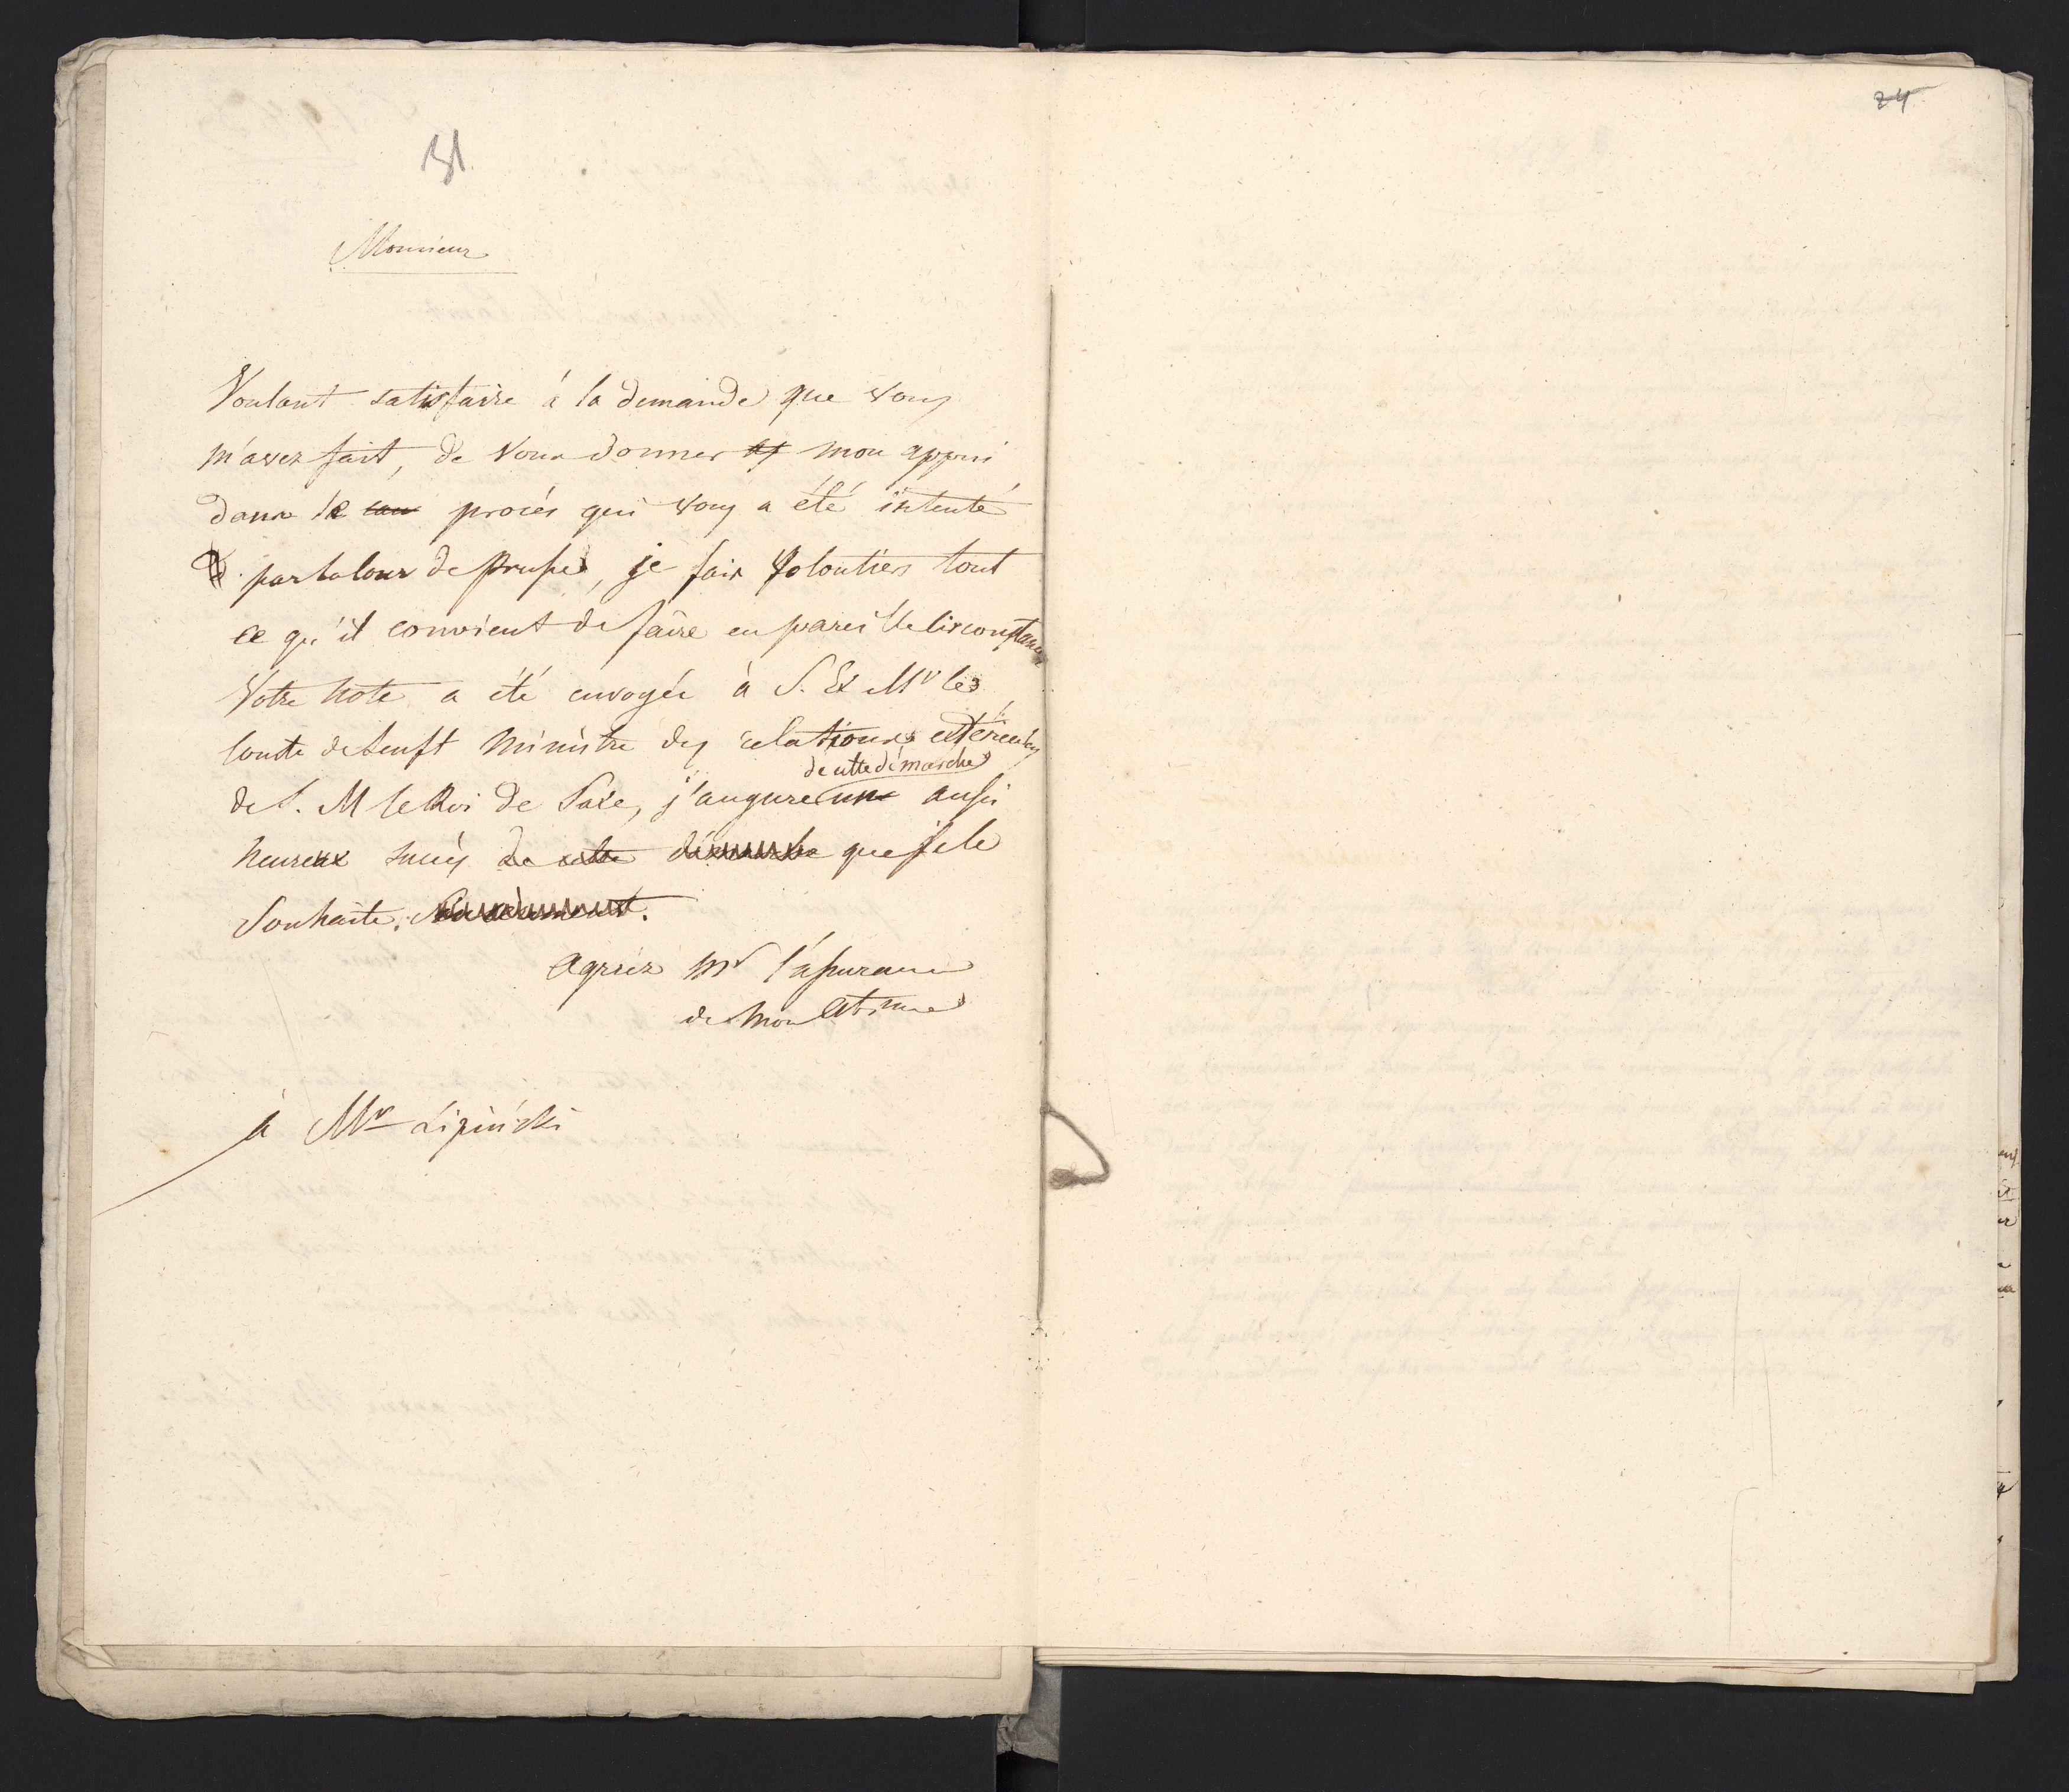 31
Monsieur
Voulant satisfaire à la demande que vous
m'avez fait, de vous donner mon appui
dans le procés qui vous a été intenté
par la Cour de Prusse, je fais volontiers tout
ce qu'il convient de faire en pareille circonstance
Votre note a été envoyée à S. Ex Mr le
Comte de Senft Ministre des relations extérieures
de cette démarche
de S. M le Roi de Saxe, j'augure un aussi
heureux succès de cette démarche que je le
Souhaite.
Agréez Mr l'assurance
de mon estime
à Mr Lipiński
24